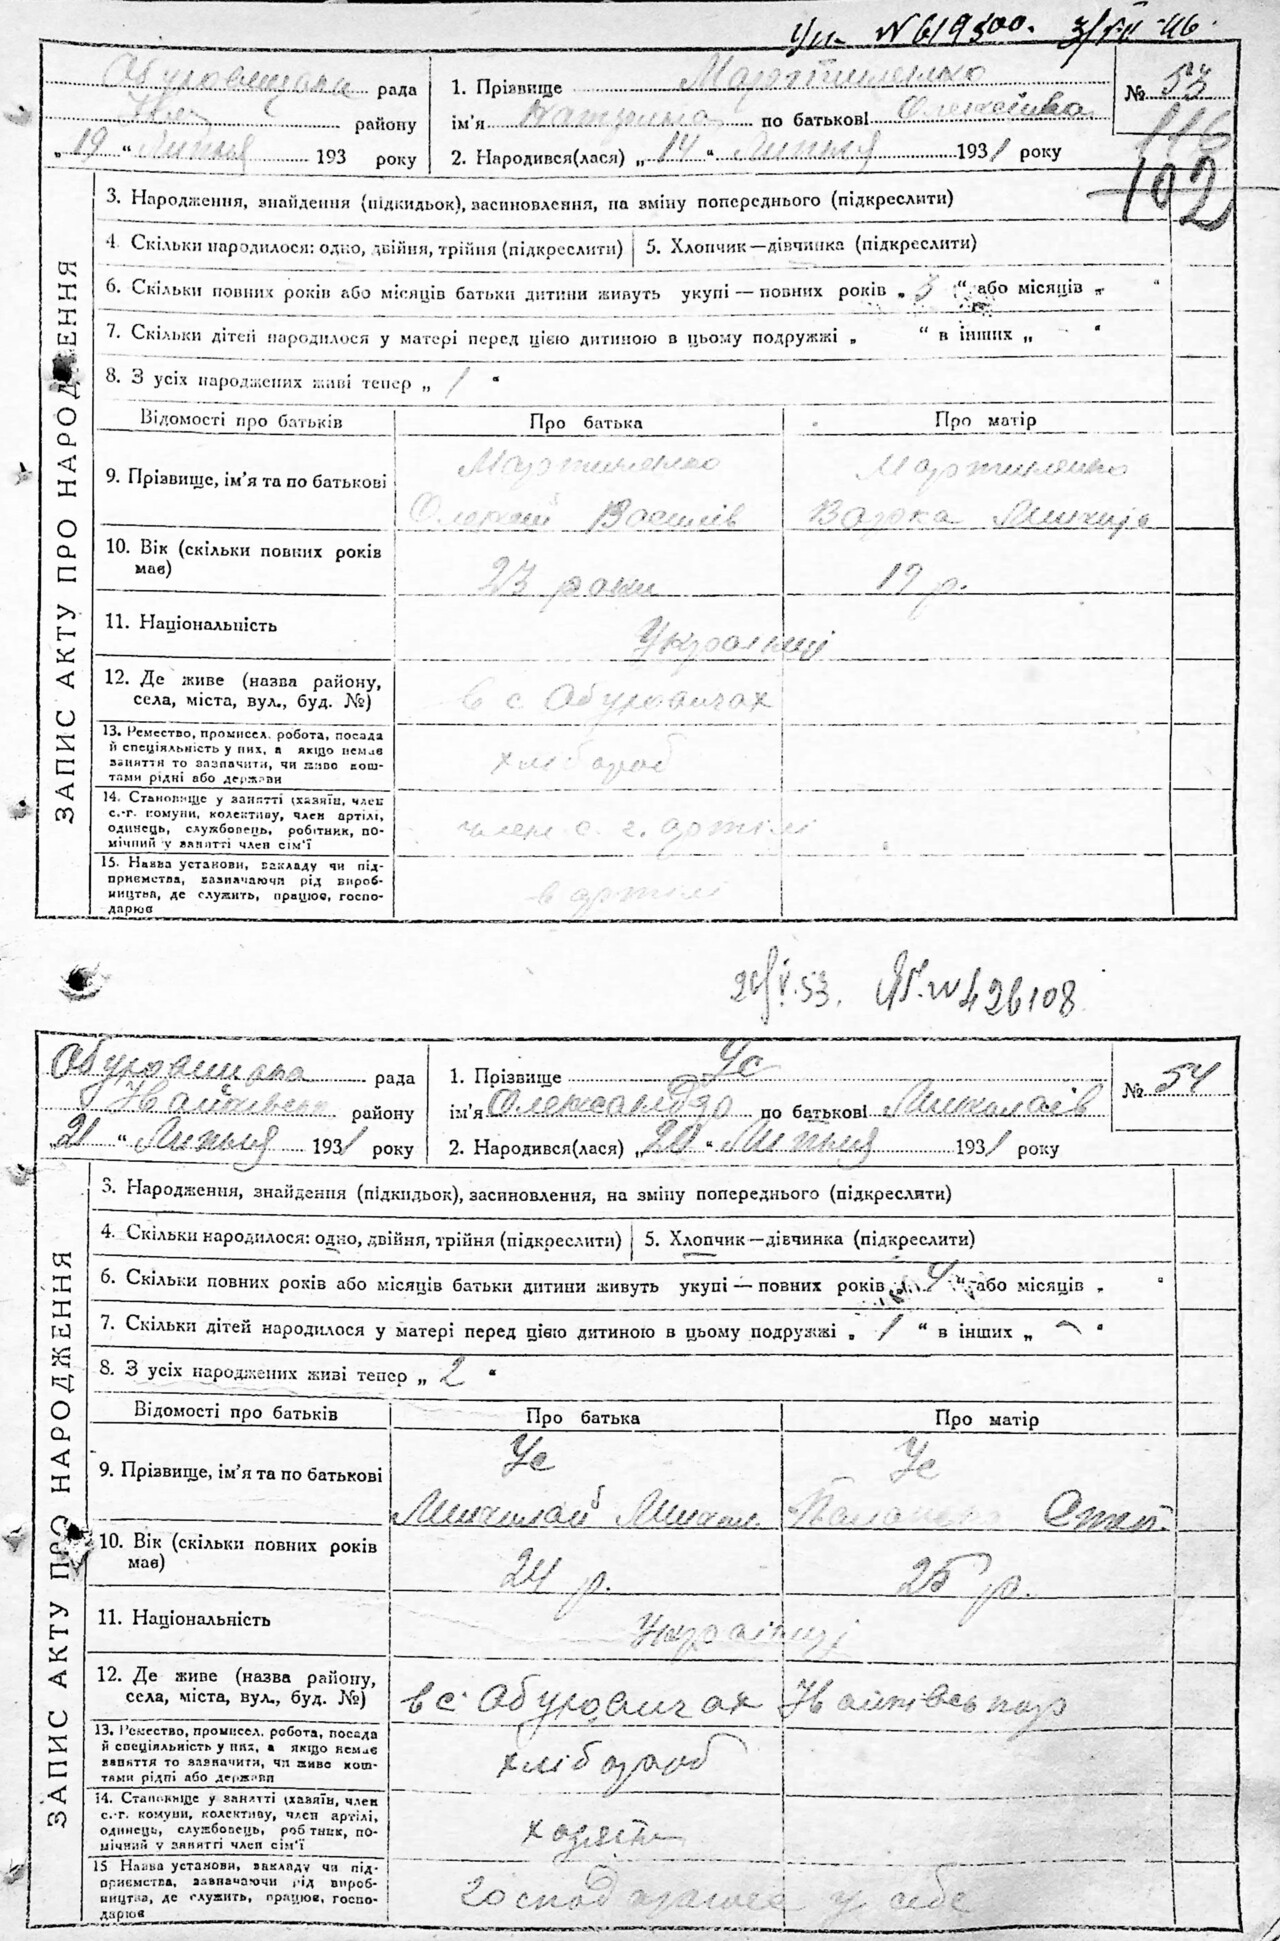 N 619300. 3/VII-46.
Обуровицька рада
району
„19“ Липня 193 року
1. Прізвище Мартиненко
ім'я Катерина по батькові Олексіївна
2. Народився(лася) „14“ Липня 1931 року
№ 53
116
102
ЗАПИС АКТУ ПРО НАРОДЖЕННЯ
3. Народження, знайдення (підкидьок), засиновлення, на зміну попереднього (підкреслити)
4. Скільки народилося: одно, двійня, трійня (підкреслити) 5. Хлопчик—дівчинка (підкреслити)
6. Скільки повних років або місяців батьки дитини живуть укупі — повних років „3“ або місяців „ “
7. Скільки дітей народилося у матері перед цією дитиною в цьому подружжі „ “ в інших „ - “
8. З усіх народжених живі тепер „ 1 “
Відомості про батьків Про батька Про матір
9. Прізвище, ім'я та по батькові
Мартиненко Мартиненко
Олексій Василів Варка
10. Вік (скільки повних років має)
23 роки 19 р.
11. Національність
Українці
12. Де живе (назва району,
села, міста, вул., буд. №)
в с Обуровичах
13. Ремество, промисел, робота, посада
й спеціяльність у них, а якщо немає
заняття то зазначити, чи живе кош-
тами рідні або держави
хлібороб
14. Становище у занятті (хазяїн, член
с.-г. комуни, колективу, член артілі,
одинець, службовець, робітник, по-
мічний у занятті член сім'ї
член с. г. артілі
15. Назва установи, закладу чи під-
приємства, зазначаючи рід вироб-
ництва, де служить, працює, госпо-
дарює
в артілі
N 426108
Обуровицька рада
Іванківськ району
21 “ Липня 1931 року
1. Прізвище Ус
ім'я Олександр по батькові Миколаїв
2. Народився(лася) „20“ Липня 1931 року
№ 54
ЗАПИС АКТУ ПРО НАРОДЖЕННЯ
3. Народження, знайдення (підкидьок), засиновлення, на зміну попереднього (підкреслити)
4. Скільки народилося: одно, двійня, трійня (підкреслити) 5. Хлопчик—дівчинка (підкреслити)
6. Скільки повних років або місяців батьки дитини живуть укупі — повних років „4“ або місяців „ “
7. Скільки дітей народилося у матері перед цією дитиною в цьому подружжі „ 1 “ в інших „ - “
8. З усіх народжених живі тепер „ 2 “
Відомості про батьків Про батька Про матір
9. Прізвище, ім'я та по батькові
Ус Ус
10. Вік (скільки повних років має)
24 р. 25 р.
11. Національність
Українці
12. Де живе (назва району,
села, міста, вул., буд. №)
в с. Обуровичах Іванківськ р
13. Ремество, промисел, робота, посада
й спеціяльність у них, а якщо немає
заняття то зазначити, чи живе кош-
тами рідні або держави
хлібороб
14. Становище у занятті (хазяїн, член
с.-г. комуни, колективу, член артілі,
одинець, службовець, робтник, по-
мічний у занятті член сім'ї
хазяїн
15 Назва установи, закладу чи під-
приємства, зазначаючи рід вироб-
ництва, де служить, працює, госпо-
дарює
господарює у себе